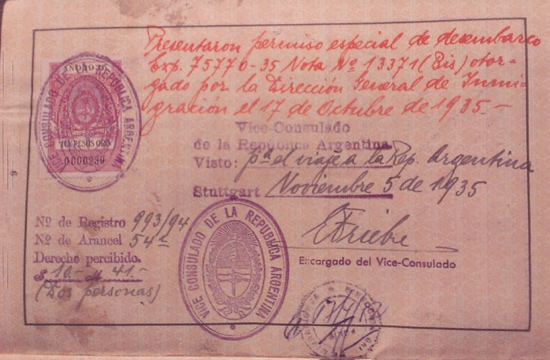 Presentaron permiso especial de desembarco
Exp. 75770-35 Nota Nº 13371 (Bis) otor-
gado por la Dirección General de Inmi-
gración el 17 de Octubre de 1935.-
VICE CONSULADO DE LA REPUBLICA ARGENTINA
0000289
Vice-Consulado
de la República Argentina.
Visto: pª el viaje a la Rep. Argentina
Stuttgart Noviembre 5 de 1935
Nº de Registro 993/94
Nº de Arancel 54-
Derecho percibido.
$ 10.- 41.-
(Dos personas)
VICE CONSULADO DE LA REPUBLICA ARGENTINA
Encargado del Vice-Consulado
6